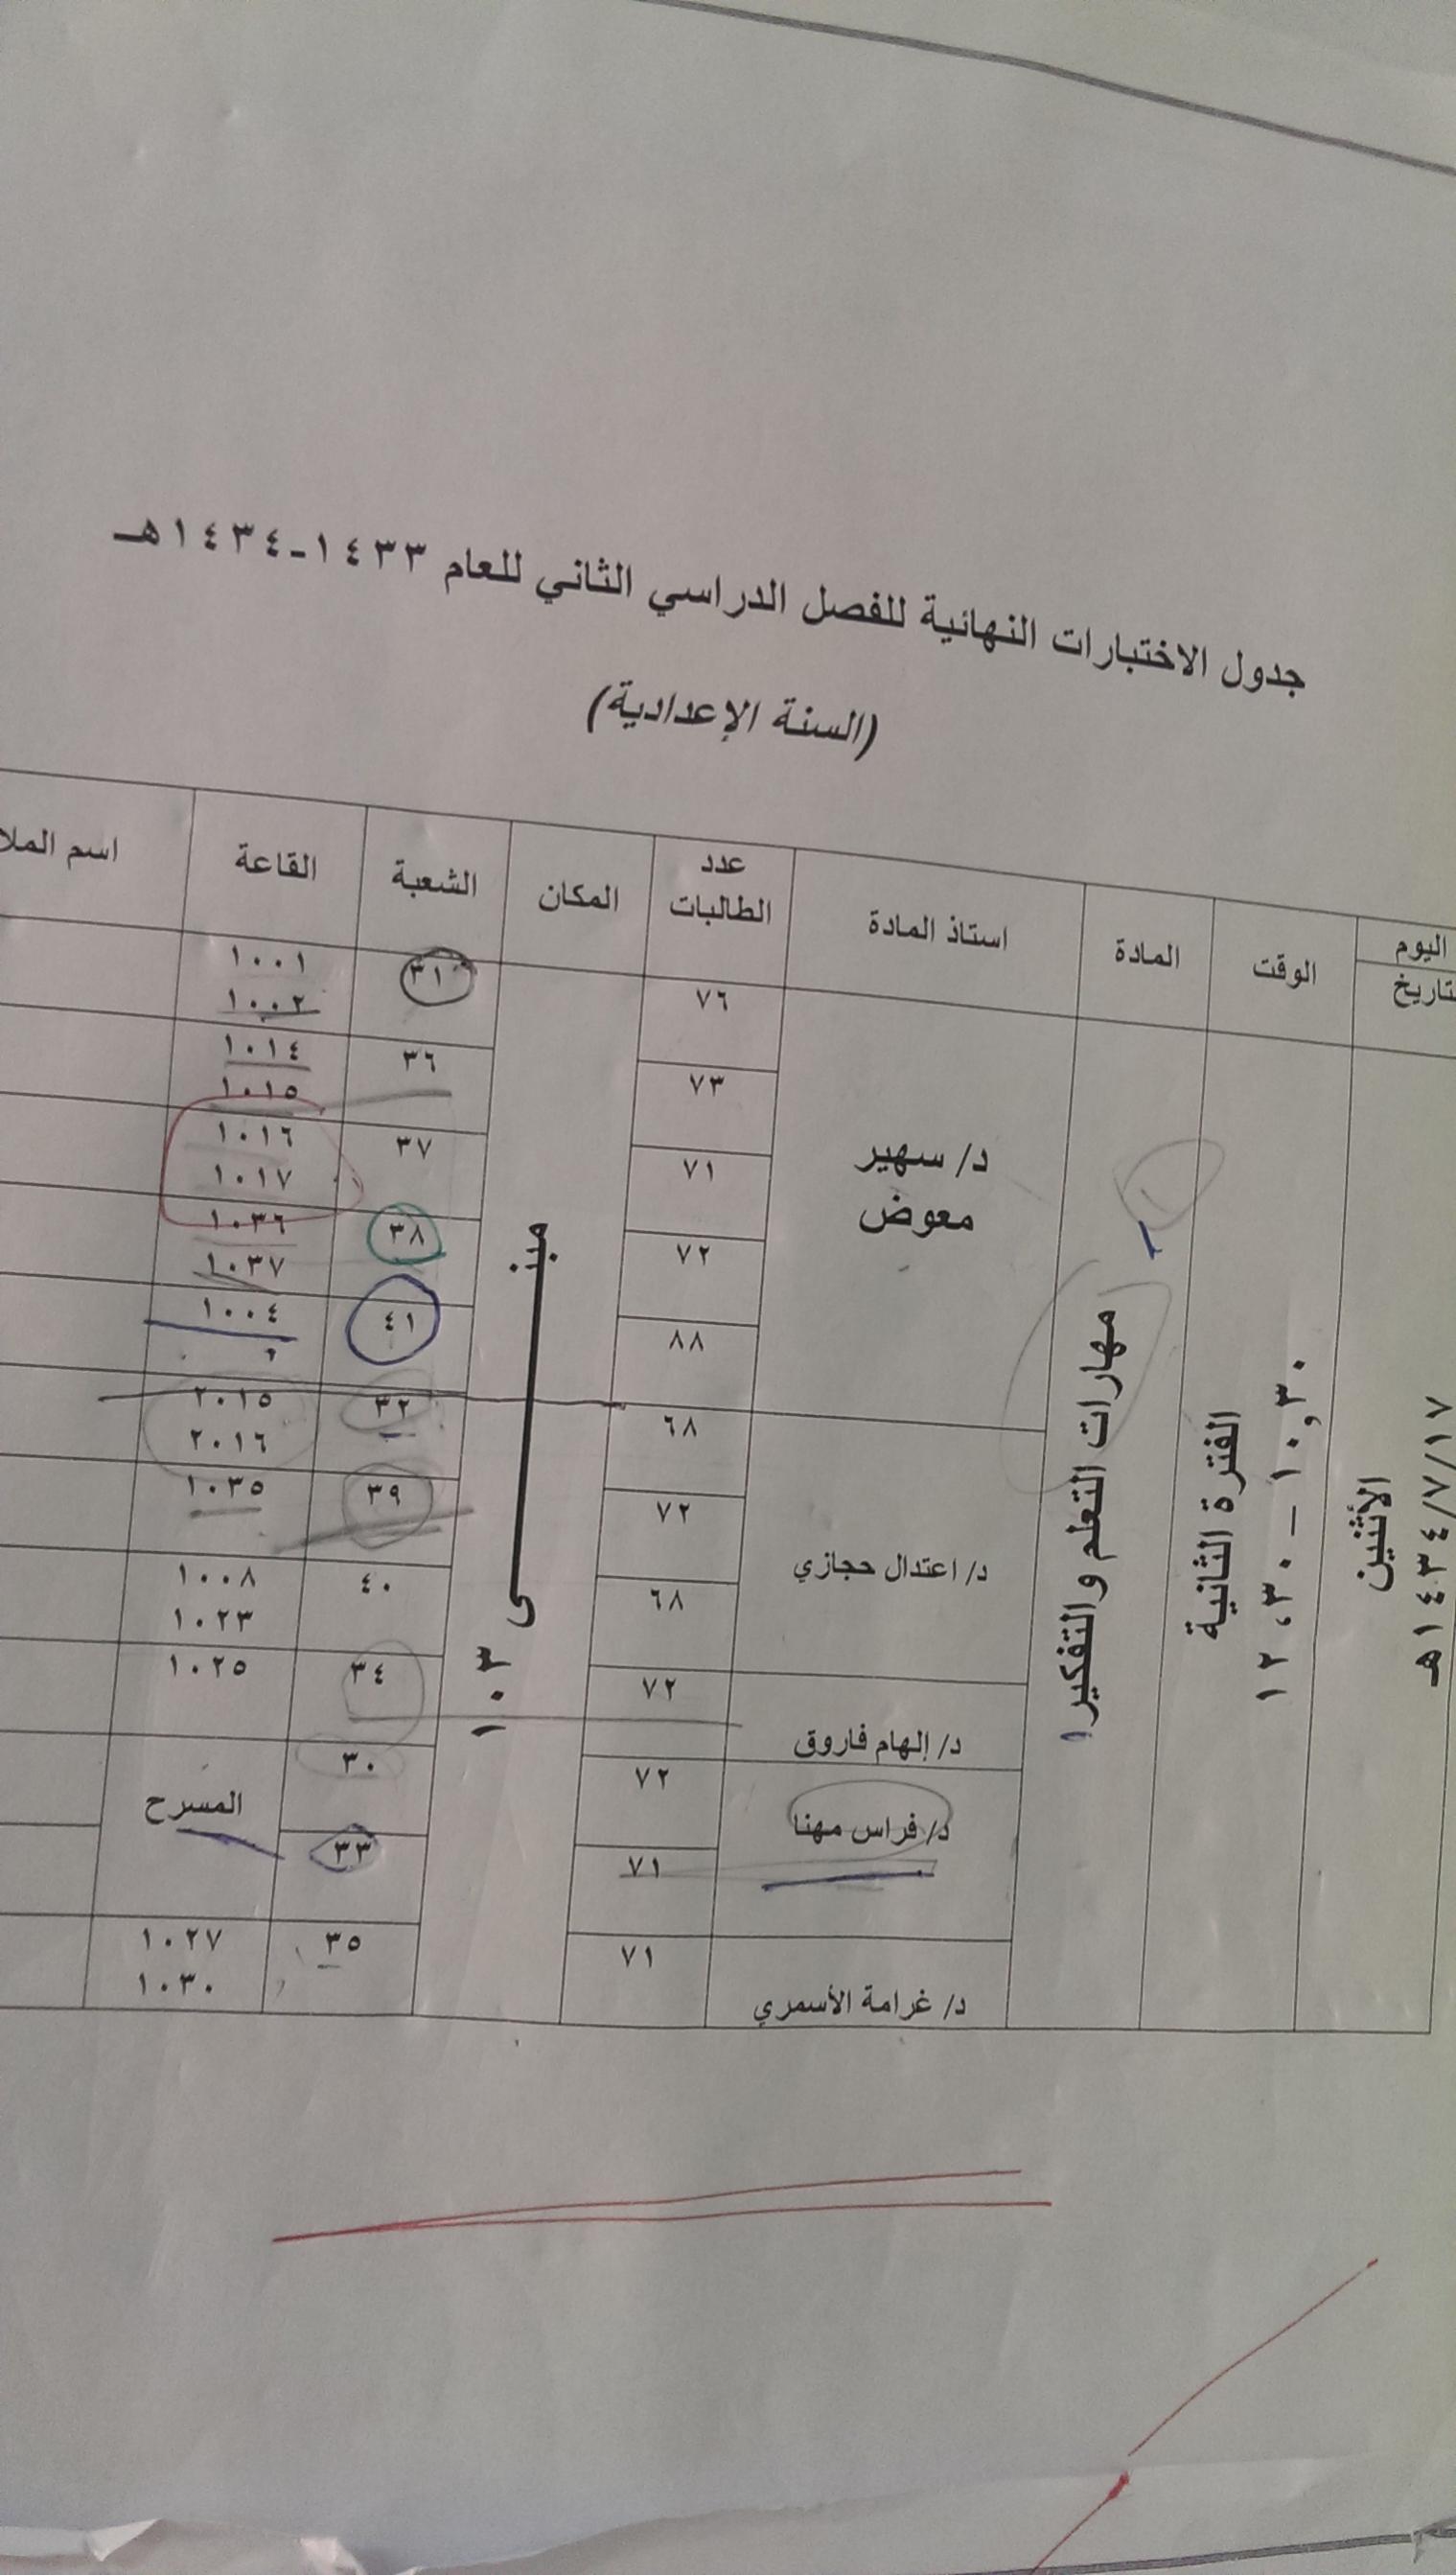 جدول الاختبارات النهائية للفصل الدراسي الثاني للعام ١٤٣٣-١٤٣٤هـ
(السنة الإعدادية)
اليوم
الوقت
المادة
استاذ المادة
عدد
الطالبات
المكان
الشعبة
القاعة
اسم
الأثنين
١٤٣٤/٧/١٧هـ
الفترة الثانية
١٠,٣٠ – ١٢،٣٠
مهارات التعلم والتفكير ١
مبنــى ١٠٣
د/ سهير
معوض
٧٦ ٣١ ١٠٠١
١٠٠٢
٧٣ ٣٦ ١٠١٤
١٠١٥
٧١ ٣٧ ١٠١٦
١٠١٧
٧٢ ٣٨ ١٠٣٦
١٠٣٧
٨٨ ٤١ ١٠٠٤
د/ اعتدال حجازي
٦٨ ٣٢ ٢٠١٥
٢٠١٦
٧٢ ٣٩ ١٠٣٥
٦٨ ٤٠ ١٠٠٨
١٠٢٣
د/ إلهام فاروق
٧٢ ٣٤ ١٠٢٥
د/ فراس مهنا
٧٢ ٣٠ المسرح
٧١ ٣٣
د/ غرامة الأسمري
٧١ ٣٥ ١٠٢٧
١٠٣٠